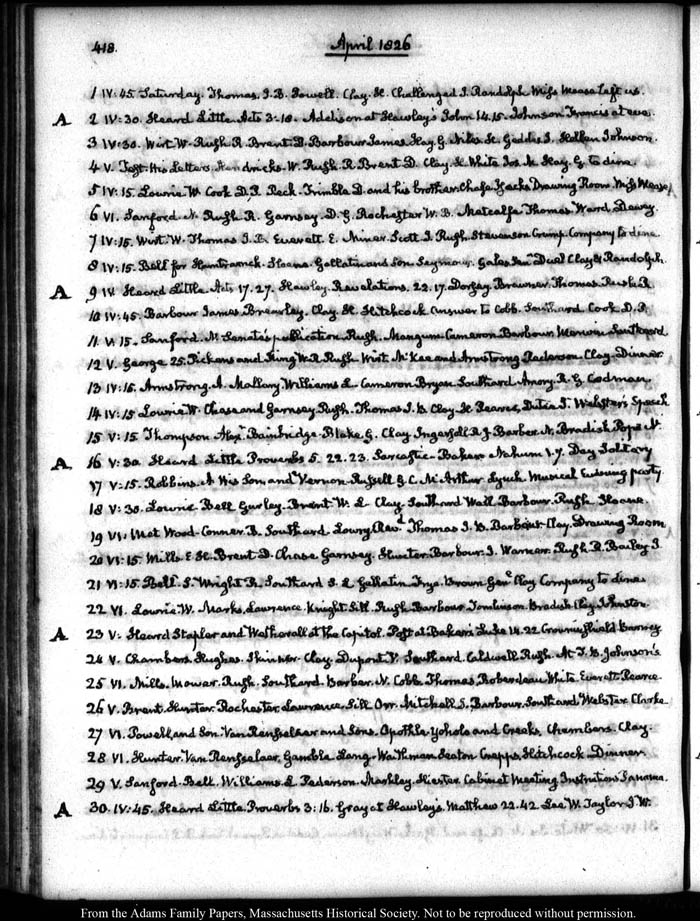 418.
April 1826
1 IV:45. Saturday. Thomas, J. B. Powell. Clay. H. Challenged J. Randolph Miss Mease left us.
A 2 IV:30. Heard Little. Acts 3:18. Addison at Hawley's John 14.15. Johnson Francis at eve.
3 IV:30. Wirt. W. Rush. R. Brent. D. Barbour James Hay. G. Niles. H. Geddes. J. Hellen Johnson.
4 V. Test. His Letters. Hendricks. W. Rush. R. Brent D. Clay. H. White Jos. M. Hay. G. to dine.
5 IV:15. Lowrie. W. Cook D. P. Peck. Trimble D. and his brother. Chase Drawing Room. Miss Mease
6 VI. Sanford. N. Rush R. Garnsey. D. G. Rochester W. B. Metcalfe Thomas. Ward. Dewey.
7 IV:15. Wirt. W. Thomas J. B. Everett. E. Miner. Scott J. Rush. Stevenson Crump. Company to dine
8 IV:15. Bell for Sloane. Gallatin and Son Seymour. Gales Junr. Duel Clay & Randolph.
A 9 IV. Heard Little. Acts 17.27. Hawley. Revelations. 22.17. Dorsey. Brawner. Thomas. Rush. R.
10 IV:45. Barbour James. Brearley. Clay. H. Hitchcock Answer to Cobb. Southard Cook D. P.
11 V. 15. Sanford. N. Senate's publication Rush. Mangum Cameron Barbour Southard
12 V. George 25. Pickens and King W. R. Rush Wirt. McKee and Armstrong Pederson Clay. Dinner
13 IV:15. Armstrong. A. Mallary. Williams L. Cameron. Bryan. Southard. Amory. R. G. Codman
14 IV:15 Lowrie. W. Chase and Garnsey. Rush. Thomas. J. B. Clay. H. Pearce, Dutee J. Webster's Speech
15 V:15 Thompson Alexr. Bainbridge. Blake. G. Clay. Ingersoll R. J. Barber N. Bradish Pope N.
A 16 V:30. Heard Little Proverbs 5. 22. 23. Sarcastic. Baker Nahum 1.7. Day Solitary
17 V:15. Robbins. A. His Son and Vernon. Russell G. C. McArthur Lynch. Musical Evening party
18 V:30. Lowrie Bell Gurley. Brent W. L. Clay. Southard Wall. Barbour. Rush. Sloane.
19 VI. Met Ward. Connor. B. Southard. Lowry. Revd. Thomas J. B. Barbour. Clay. Drawing Room
20 VI:15. Mills. E. H. Brent D. Chase Garnsey. Hunter. Barbour. J. Warner. Rush. R. Bailey J.
21 VI:15 Bell. S. Wright R. Southard S. L Gallatin Frye. Brown Genl. Clay Company to dine.
22 VI. Lowrie. W. Marks. Lawrence. Knight Sill. Rush Barbour. Tomlinson. Bradish Clay. Johnston.
A 23 V. Heard Stapler and Wetherall at the Capitol. Post at Baker's Luke 14.22 Crowninshield Burney
24 V. Chambers. Hughes. Skinner. Clay. Dupont V. Southard. Caldwell Rush. At J. S. Johnson's
25 VI. Mills. Mower. Rush. Southard. Barber. N. Cobb. Thomas. Roberdeau White. Everett Pearce.
26 V. Brent. Hunter. Rochester. Lawrence. Sill. Orr. Mitchell. S. Barbour. Southard Webster Clarke
27 VI. Powell and Son. Van Rensselaer and Sons. Opothle Yohola and Creeks, Chambers. Clay.
28 VI. Hunter. Van Rensselaer, Gamble Lang. Watkman Seaton Hitchcock Dinner
29 V. Sanford. Bell. Williams. L Pederson. Markley. Hiester. Cabinet Meeting Instructions Panama.
A 30. IV:45. Heard Little. Proverbs 3:16. Gray at Hawley's. Matthew 22.42. Lee W. Taylor J. W.
From the Adams Family Papers, Massachusetts Historical Society. Not to be reproduced without permission.